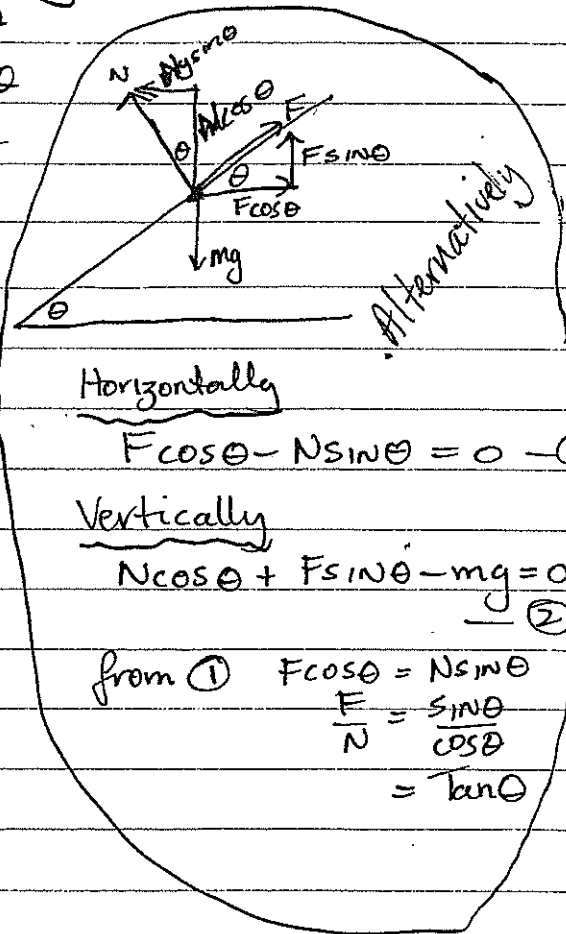 N Nsinθ
θ Ncosθ F
θ Fsinθ
Fcosθ
mg
θ
Alternatively
Horizontally
Fcosθ - Nsinθ = 0 - (
Vertically
Ncosθ + Fsinθ - mg = 0
— ②
from ① Fcosθ = Nsinθ
F/N = sinθ/cosθ
= Tanθ